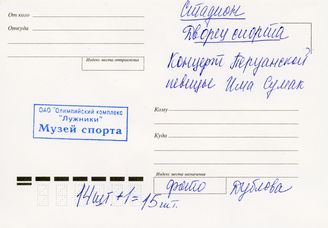 От кого
Откуда
Индекс места отправления
ОАО "Олимпийский комплекс
"Лужники"
Музей спорта
Стадион
Дворец спорта
Концерт Перуанской
певицы Има Сумак
Кому
Куда
Индекс места назначения
фото Дублова
14шт.+1=15шт.